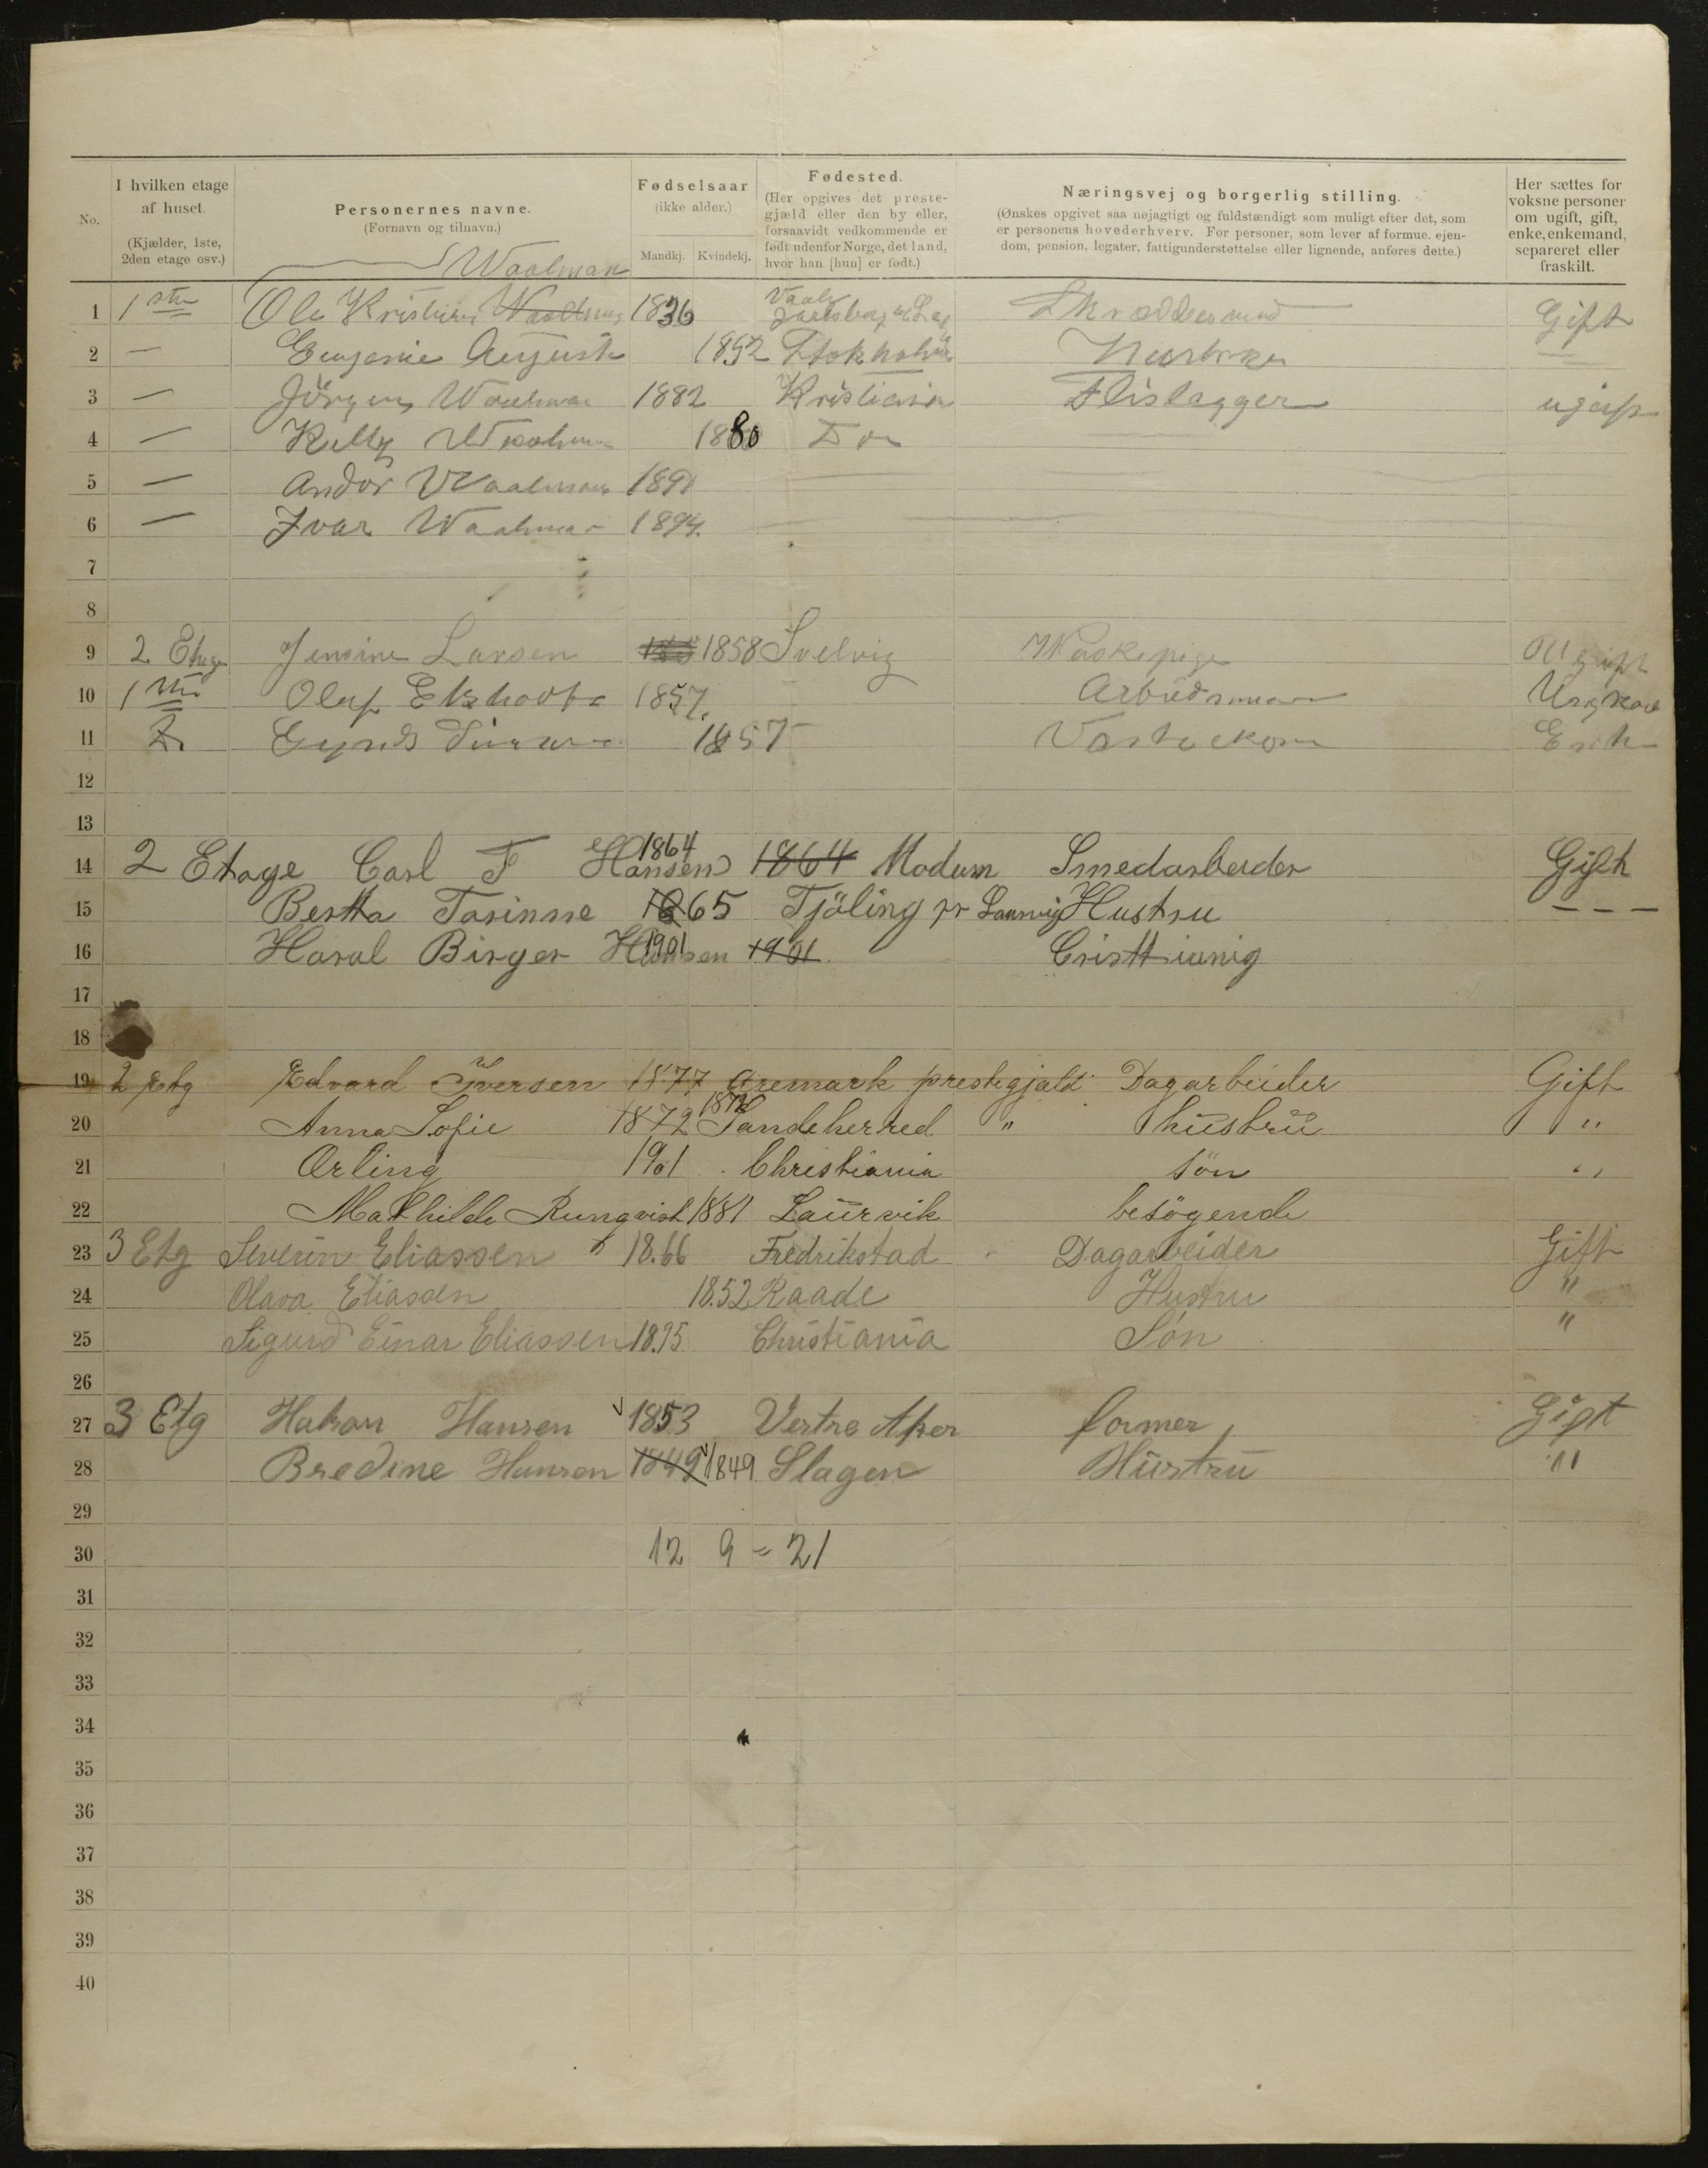 No.
I hvilken etage af huset. (Kjælder, 1ste, 2den etage osv.)
Personernes navne. (Fornavn og tilnavn.)
Fødselsaar (ikke alder.) Mandkj. Kvindekj.
Fødested. (Her opgives det prestegjæld eller den by eller, forsaavidt vedkommende er født udenfor Norge, det land, hvor han [hun] er født.)
Næringsvej og borgerlig stilling. (Ønskes opgivet saa nøjagtigt og fuldstændigt som muligt efter det, som er personens hovederhverv. For personer, som lever af formue, ejendom, pension, legater, fattigunderstøttelse eller lignende, anføres dette.)
Her sættes for voksne personer om ugift, gift, enke, enkemand, separeret eller fraskilt.
Waalman
1 1ste Ole Kristian Waalman 1836 Vaale Gift
2 — Eugenie August 1852 Stokholm —
3 — Jörgen Waalman 1882 Kristiania Flislægger ugift
4 — Waalman 1880 Do
5 — Andor Waalman 1891 —
6 — Ivar Waalman 1894. —
7
8
9 2 Etage Jensine Larsen 1858 Svelvig Vaskepige Ugift
10 1ste Oluf 1857. Arbeidsman Ungkar
11 Do 1857 Vaskekone Enke
12
13
14 2 Etage Carl F Hansen 1864 1864 Modum Smedarbeder Gift
15 Bertha Tarinne 1865 Tjöling pr Laurvig Hustru - - -
16 Haral Birger Hansen 1901 1901. Cristtianig
17
18
19 2 Etg Edvard Iversen 1877 Aremark prestegjald Dagarbeider Gift
20 Anna Sofie 1872 1872 Sandeherred " hustru "
21 Erling 1901 Christiania sön "
22 Mathilde Runqvist 1881 Laurvik besögende
23 3 Etg Severin Eliassen 18.66 Fredrikstad Dagarbeider Gift
24 Olava Eliassen 18.52 Raade Hustru "
25 Sigurd Einar Eliassen 18.95 Christiania Søn "
26
27 3 Etg Hakon Hansen 1853 Vestre Aker former Gift
28 Bredine Hansen 1849 1849 Slagen Hustru "
29
30 12 9 = 21
31
32
33
34
35
36
37
38
39
40